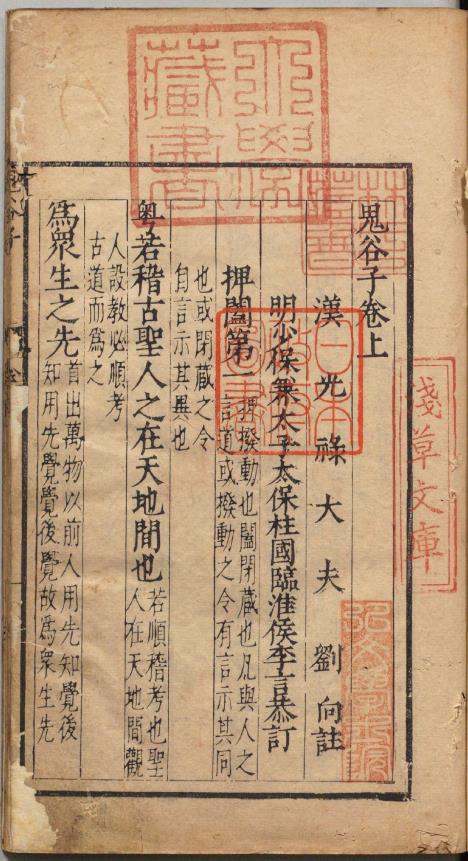 鬼谷子卷上
漢光祿大夫劉向註
明少保兼太子太保柱國臨淮侯李言恭訂
捭闔第一
捭撥動也闔閉藏也凡與人之
言道或撥動之令有言示其同
也或閉藏之令
自言示其異也
粵若稽古聖人之在天地間也
若順稽考也聖
人在天地間觀
人設教必順考
古道而爲之
爲衆生之先
首出萬物以前人用先知覺後
知用先覺覺後覺故爲衆生先
淺草文庫
日本政府圖書